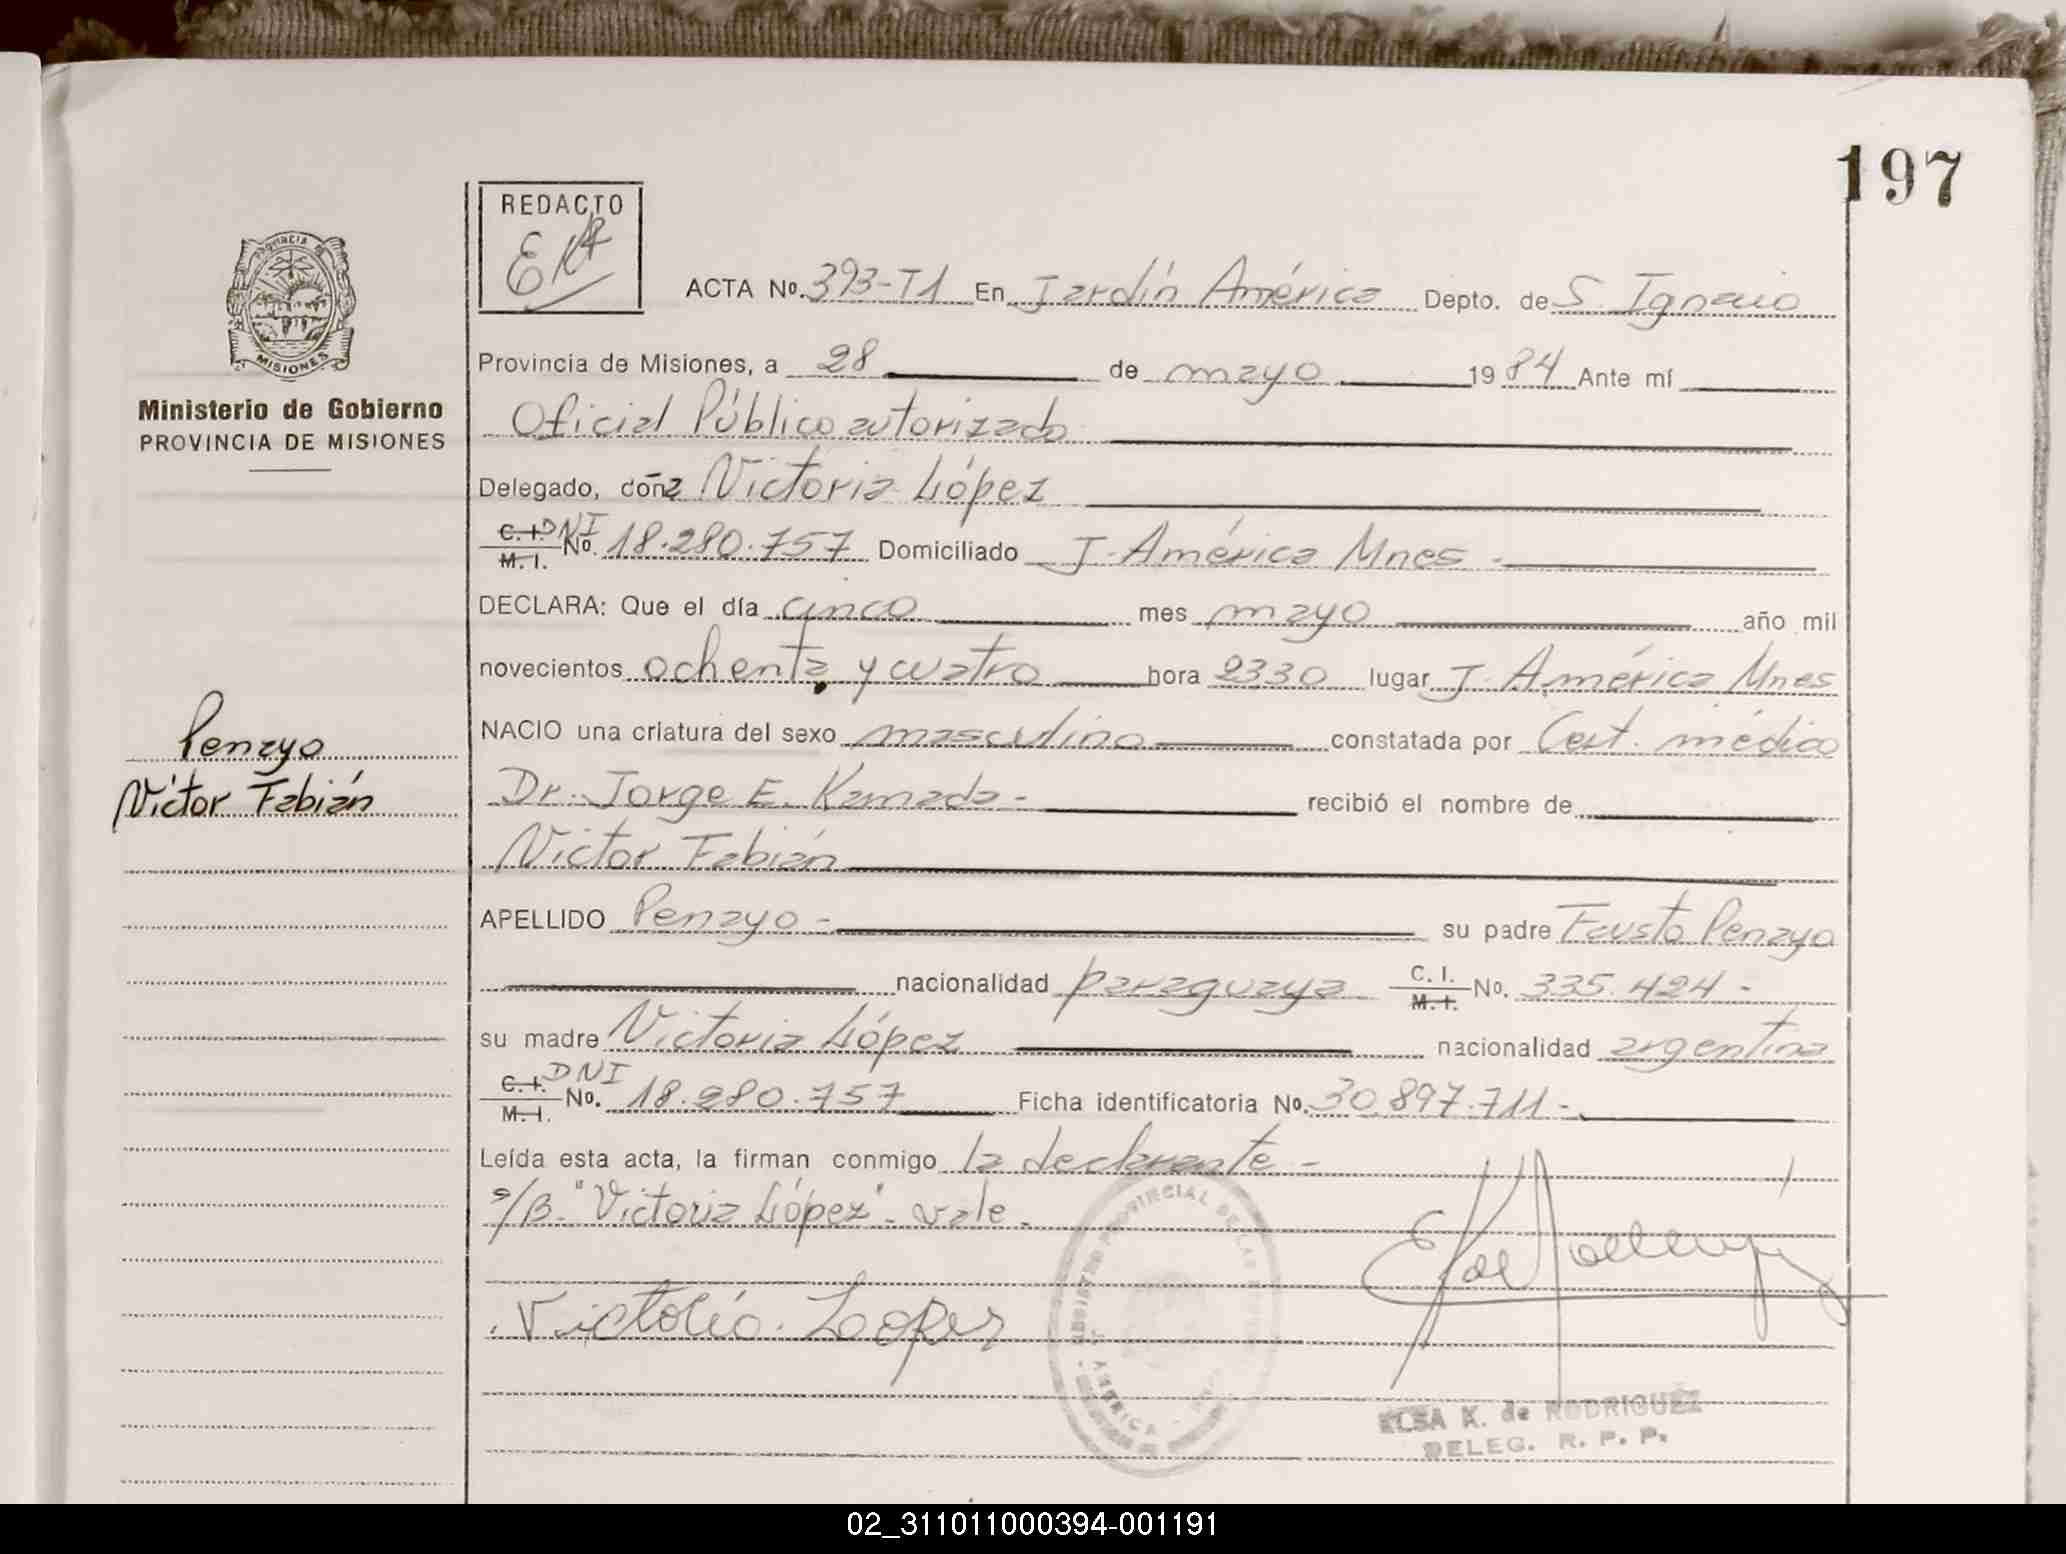 197
REDACTO
EKR
ACTA Nº. 393-T1 En Jardín América Depto. de S. Ignacio
Provincia de Misiones, a 28 de mayo 1984 Ante mí
Oficial Público autorizado
Delegado, doña Victoria López
C. I. DNI
M. I. Nº. 18.280.757 Domiciliado J. América Mnes -
DECLARA: Que el día cinco mes mayo año mil
novecientos ochenta y cuatro hora 23,30 lugar J. América Mnes
NACIO una criatura del sexo masculino constatada por Cert. médico
Dr. Jorge E. Kamada - recibió el nombre de
Victor Fabián
APELLIDO Penayo - su padre Fausto Penayo
nacionalidad paraguaya C. I. M. I. Nº. 335.424 -
su madre Victoria López nacionalidad argentina
C. I. DNI
M. I. Nº. 18.280.757 Ficha identificatoria Nº. 30.897.711 -
Leída esta acta, la firman conmigo la declarante -
s/B. "Victoria López". vale.
Victolia Lopez
PROVINCIA DE
MISIONES
Ministerio de Gobierno
PROVINCIA DE MISIONES
Penayo
Victor Fabián
REGISTRO PROVINCIAL DE LAS
AMERICA
ELSA K. de RODRIGUEZ
DELEG. R. P. P.
02_311011000394-001191